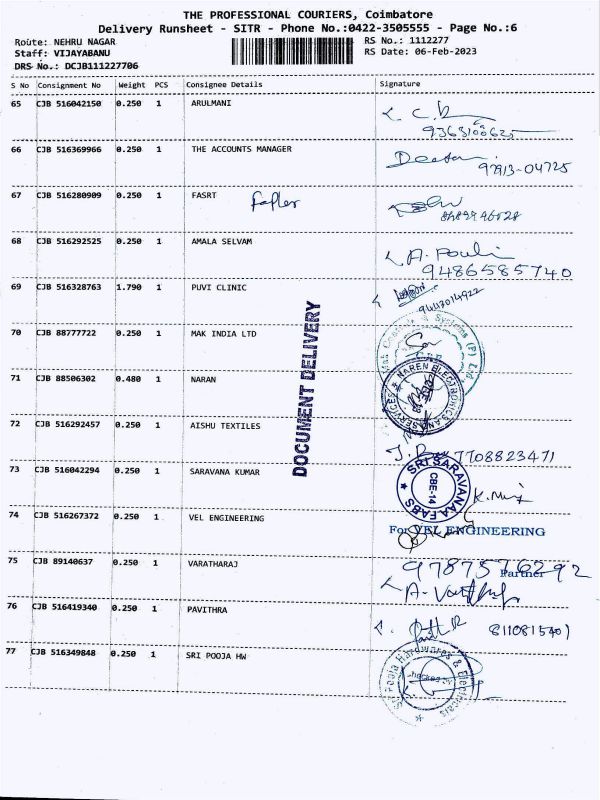 THE PROFESSIONAL COURIERS, Coimbatore
Delivery Runsheet - SITR - Phone No.:0422-3505555 - Page No.:6
Route: NEHRU NAGAR RS No.: 1112277
Staff: VIJAYABANU RS Date: 06-Feb-2023
DRS No.: DCJB111227706
S No Consignment No Weight PCS Consignee Details Signature
65 CJB 516042150 0.250 1 ARULMANI
66 CJB 516369966 0.250 1 THE ACCOUNTS MANAGER
97913-04725
67 CJB 516280909 0.250 1 FASRT
68 CJB 516292525 0.250 1 AMALA SELVAM A. Pauli
9486585740
69 CJB 516328763 1.790 1 PUVI CLINIC
DOCUMENT DELIVERY
70 CJB 88777722 0.250 1 MAK INDIA LTD
71 CJB 88506302 0.480 1 NARAN
NAREN ELECTRONICS AND SERVICES
72 CJB 516292457 0.250 1 AISHU TEXTILES
7708823471
73 CJB 516042294 0.250 1 SARAVANA KUMAR
SRI SARAVANAA FABS
CBE-14
74 CJB 516267372 0.250 1 VEL ENGINEERING
For VEL ENGINEERING
Partner
75 CJB 89140637 0.250 1 VARATHARAJ
9787576292
76 CJB 516419340 0.250 1 PAVITHRA
77 CJB 516349848 0.250 1 SRI POOJA HW
Sri Pooja Hardwares & Electricals